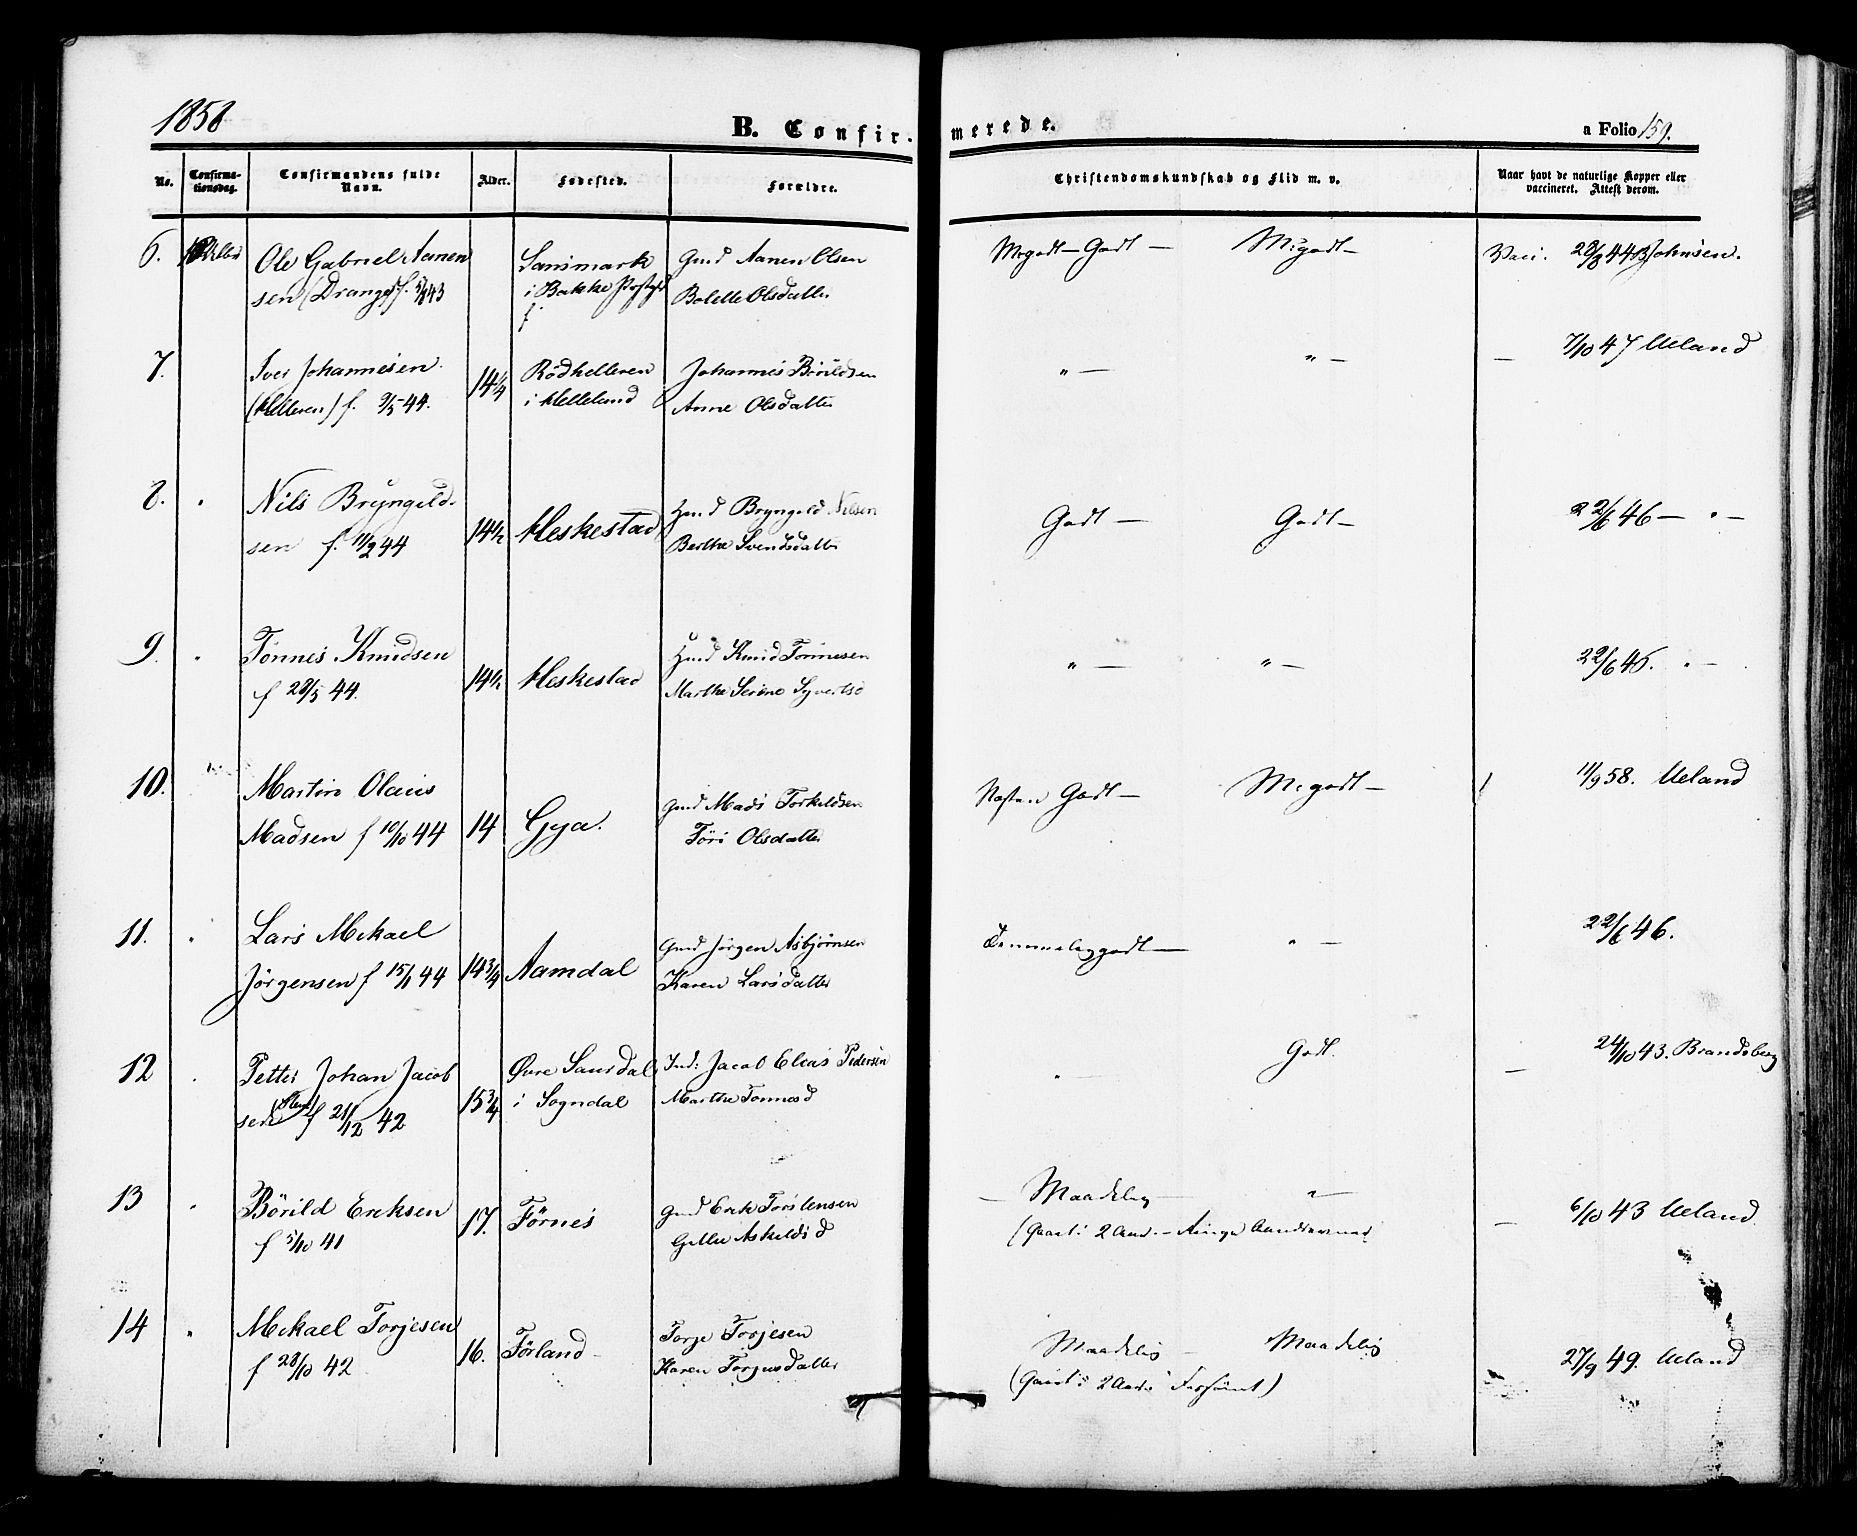 1858
B. Confirmerede.
a Folio 159.
No.
Confirma-
tionsdag.
Confirmandens fulde
Navn.
Alder.
Fødested.
Forældre.
Christendomskundskab og Flid m. v.
Naar havt de naturlige Kopper eller
vaccineret. Attest derom.
6.
Ole Gabriel Aanen
sen (Drange) f. 43
i Bakke Præstgd
Gmd Aanen Olsen
Bolette Olsdatter
Mgodt — Godt —
Mgodt —
Vacc. 28/8 44 Johnsen.
7.
Iver Johannesen
(Helleren) f. 9/5 - 44.
14 1/4
Rödhelleren
i Helleland
Johannes
Anne Olsdatter
" —
" —
— 7/10 47 Ueland
8. "
Nils Bryngeld-
sen f. 11/2 44
14 1/2
Heskestad
Hmd Bryngeld Nilsen
Berthe Svendsdatter
Godt —
Godt —
22/6 46 — " —
9. "
Tönnes Knudsen
f 28/5 44.
14 1/2
Heskestad
Hmd Knud Tönnesen
Marthe Serine Syvertsd
" —
" —
22/6 45. " —
10.
Martin Olaus
Madsen f 10/10 44
14
Gya.
Gmd Mads Torkildsen
Töri Olsdatter
Næsten Godt —
Mgodt —
11/9 58. Ueland
11. "
Lars Mikael
Jörgensen f 15/1 44
14 3/4
Aamdal
Gmd Jörgen Asbjörnsen
Karen Larsdatter
Temmelig godt —
" —
22/6 46.
12
Petter Johan Jacob
sen f 21/12 42
15 3/4
Övre
i Sogndal
Ind: Jacob Elias Pedersen
Marthe Tönnesd
" —
Godt.
— 24/10 43. Brandsberg
13 "
Börild Ereksen
f 5/10 41
17.
Förnes
Gmd Erik Torstensen
Askeldsd
— Maadelig —
" —
— 6/10 43 Ueland
14 "
Mikael Torjesen
f 28/10 42
16.
Förland
Torje Torjesen
Karen
Maadelig —
Maadelig
(Gaaet i 2 Aar. Forsömt)
27/9 49. Ueland